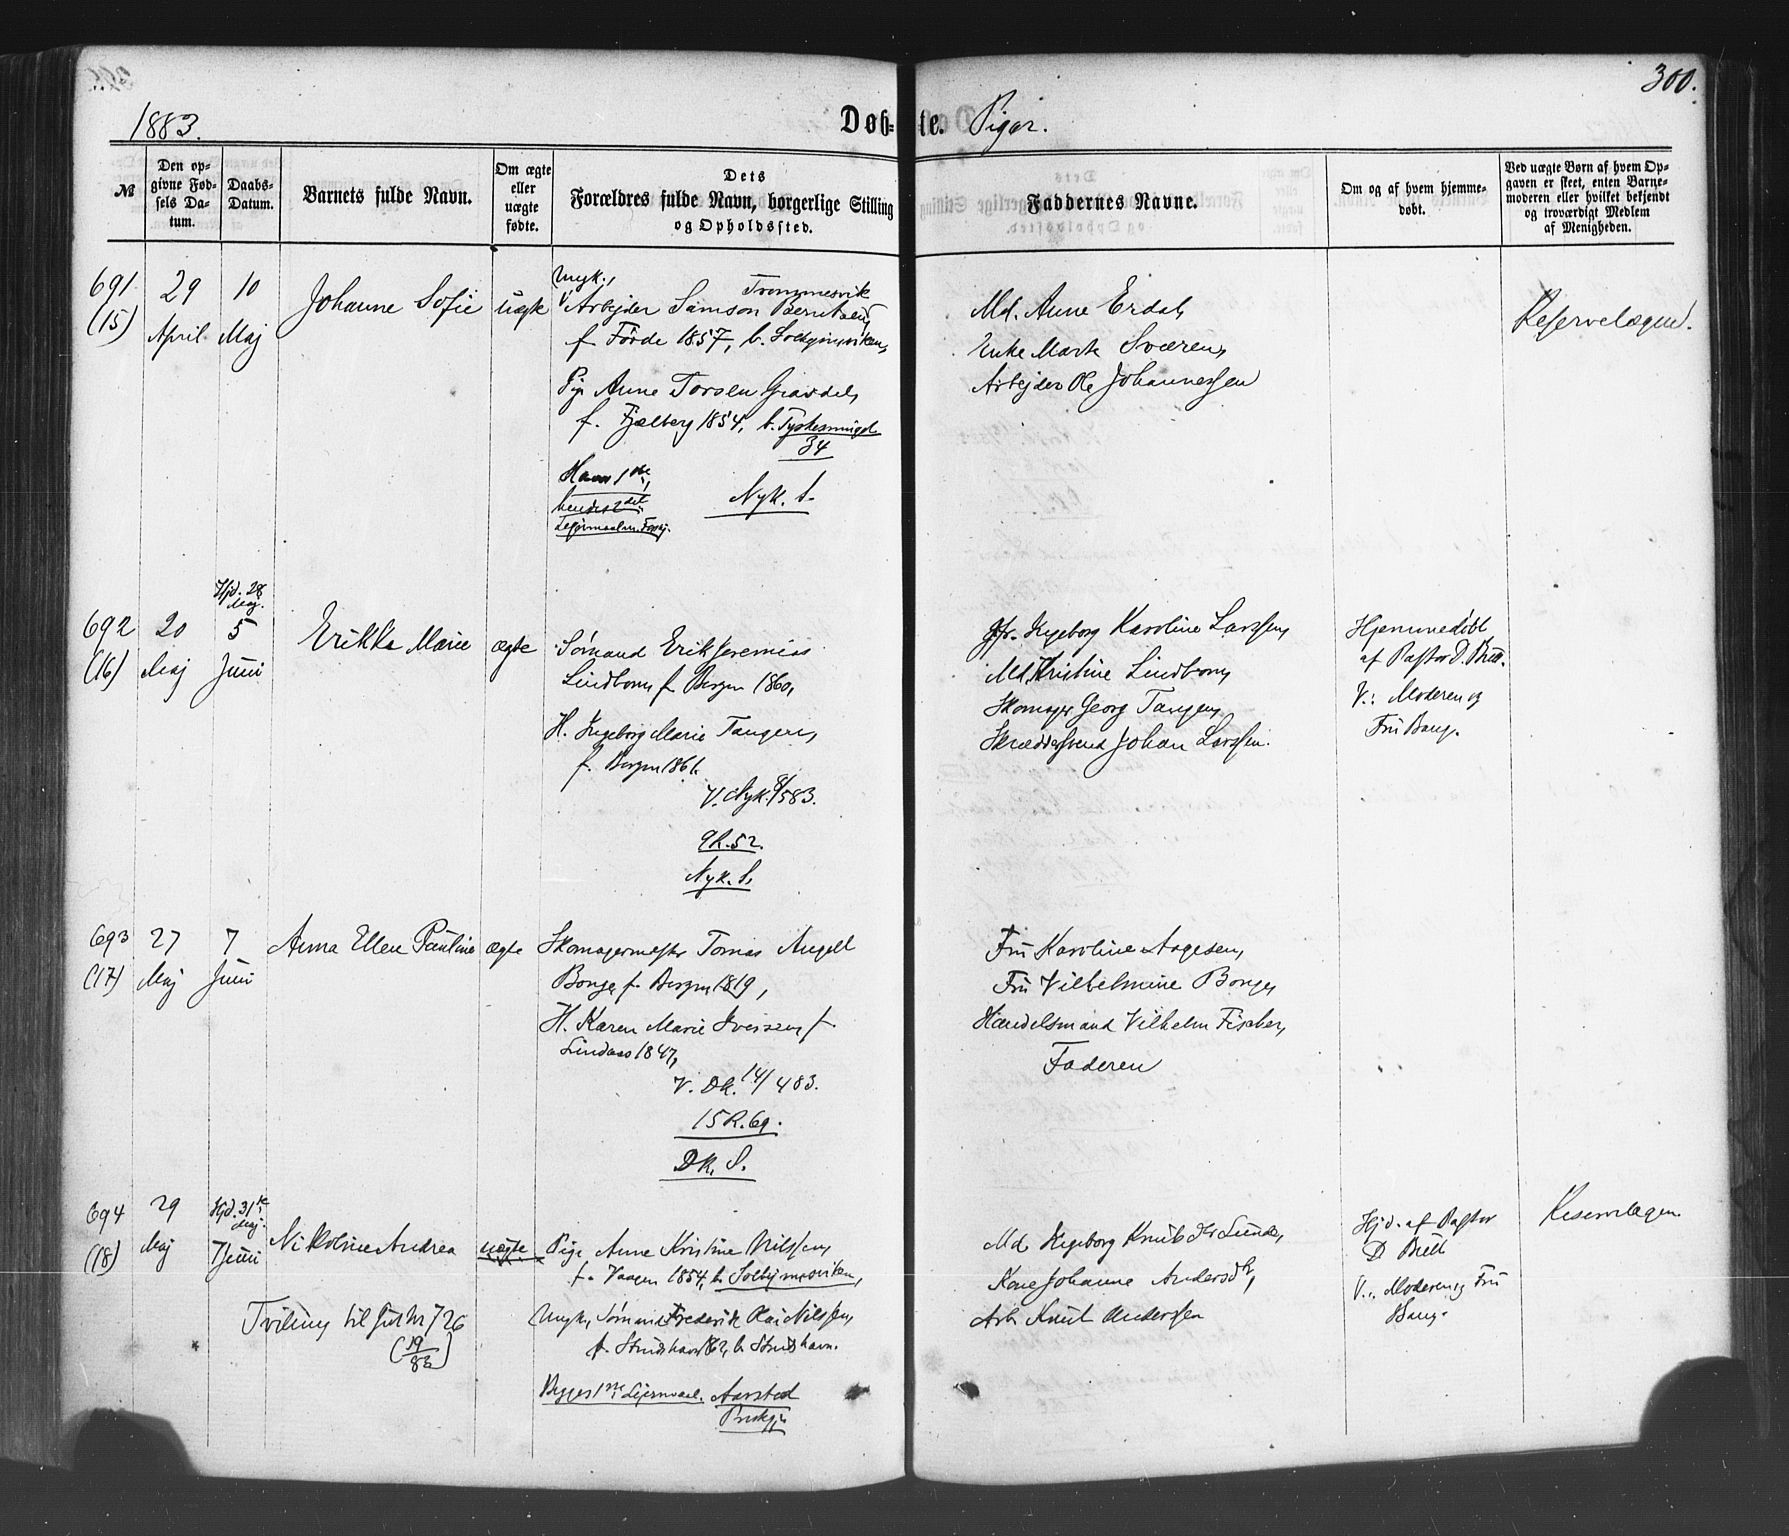 300.
1883.
Døb-te. Piger.
№
Den opgivne Fødsels Datum.
Daabs-Datum.
Barnets fulde Navn.
Om ægte eller uægte fødte.
Dets Forældres fulde Navn, borgerlige Stilling og Opholdssted.
Faddernes Navne.
Om og af hvem hjemmedøbt.
Ved uægte Børn af hvem Opgaven er skeet, enten Barnemoderen eller hvilket bekjendt og troværdigt Medlem af Menigheden.
691
(15)
29
April
10
Maj
Johanne Sofie
uægte
Ungk.,
Arbejder Samson Berntsen
Trommesvik
f. Førde 1857, b. Solhjimsviken,
Pige Anne Torsen Gravdel,
f. Fjælberg 1854, b. Tyskesmuget
34
Hans 1ste,
hendes 2det
Lejermaalm. Forseg.
Nyk. S.
Md. Anne Erdal,
Enke Marte Sværen,
Arbejder Ole Johannessen
Reservelægen.
692
(16)
20
Maj
Hjd. 28
Maj.
5
Juni
Erikka Marie
ægte
Sømand Erik Jeremias
Lindbom, f. Bergen 1860,
H. Ingeborg Marie Tangen,
f. Bergen 1861.
V. Nyk. 8/5 83.
9R.52.
Nyk. S.
Jfr. Ingeborg Karoline Larssen,
Md. Kristine Lindbom,
Skomager Georg Tangen,
Skræddersvend Johan Larssen.
Hjemmedøbt
af Pastor D. Bull.
V.: Moderen og
Fru Bang.
693
(17)
27
Maj
7
Juni
Anna Ellen Pauline
ægte
Skomagermester Tomas Angell
Bonge, f. Bergen 1819,
H. Karen Marie Iverssen, f.
Lindaas 1847,
V. DK. 14/4 83.
15R.69.
DK. S.
Fru Karoline Aagesen,
Fru Vilhelmine Bonge,
Handelsmand Vilhelm Fischer,
Faderen
694
(18)
29
Maj
Hjd. 31te
Maj.
7 Juni
Nikoline Andrea
uægte
Pige Anne Kristine Nilssen,
f. Vaagen 1854, b. Solhjimsviken,
Ungk. Sømand Frederik Kai Nilssen,
f. Strudshavn 62, b. Strudshavn.
Begges 1ste Lejermaal.
Aarstad
Tvilling til Gut Nr 726
(19/83)
Md. Ingeborg Knutsdtr Lunde,
Kone Johanne Andersdtr,
Arb. Knut Anderssen
Hjd. af Pastor
D Bull
V.: Moderen og Fru
Bang.
Reservelægen